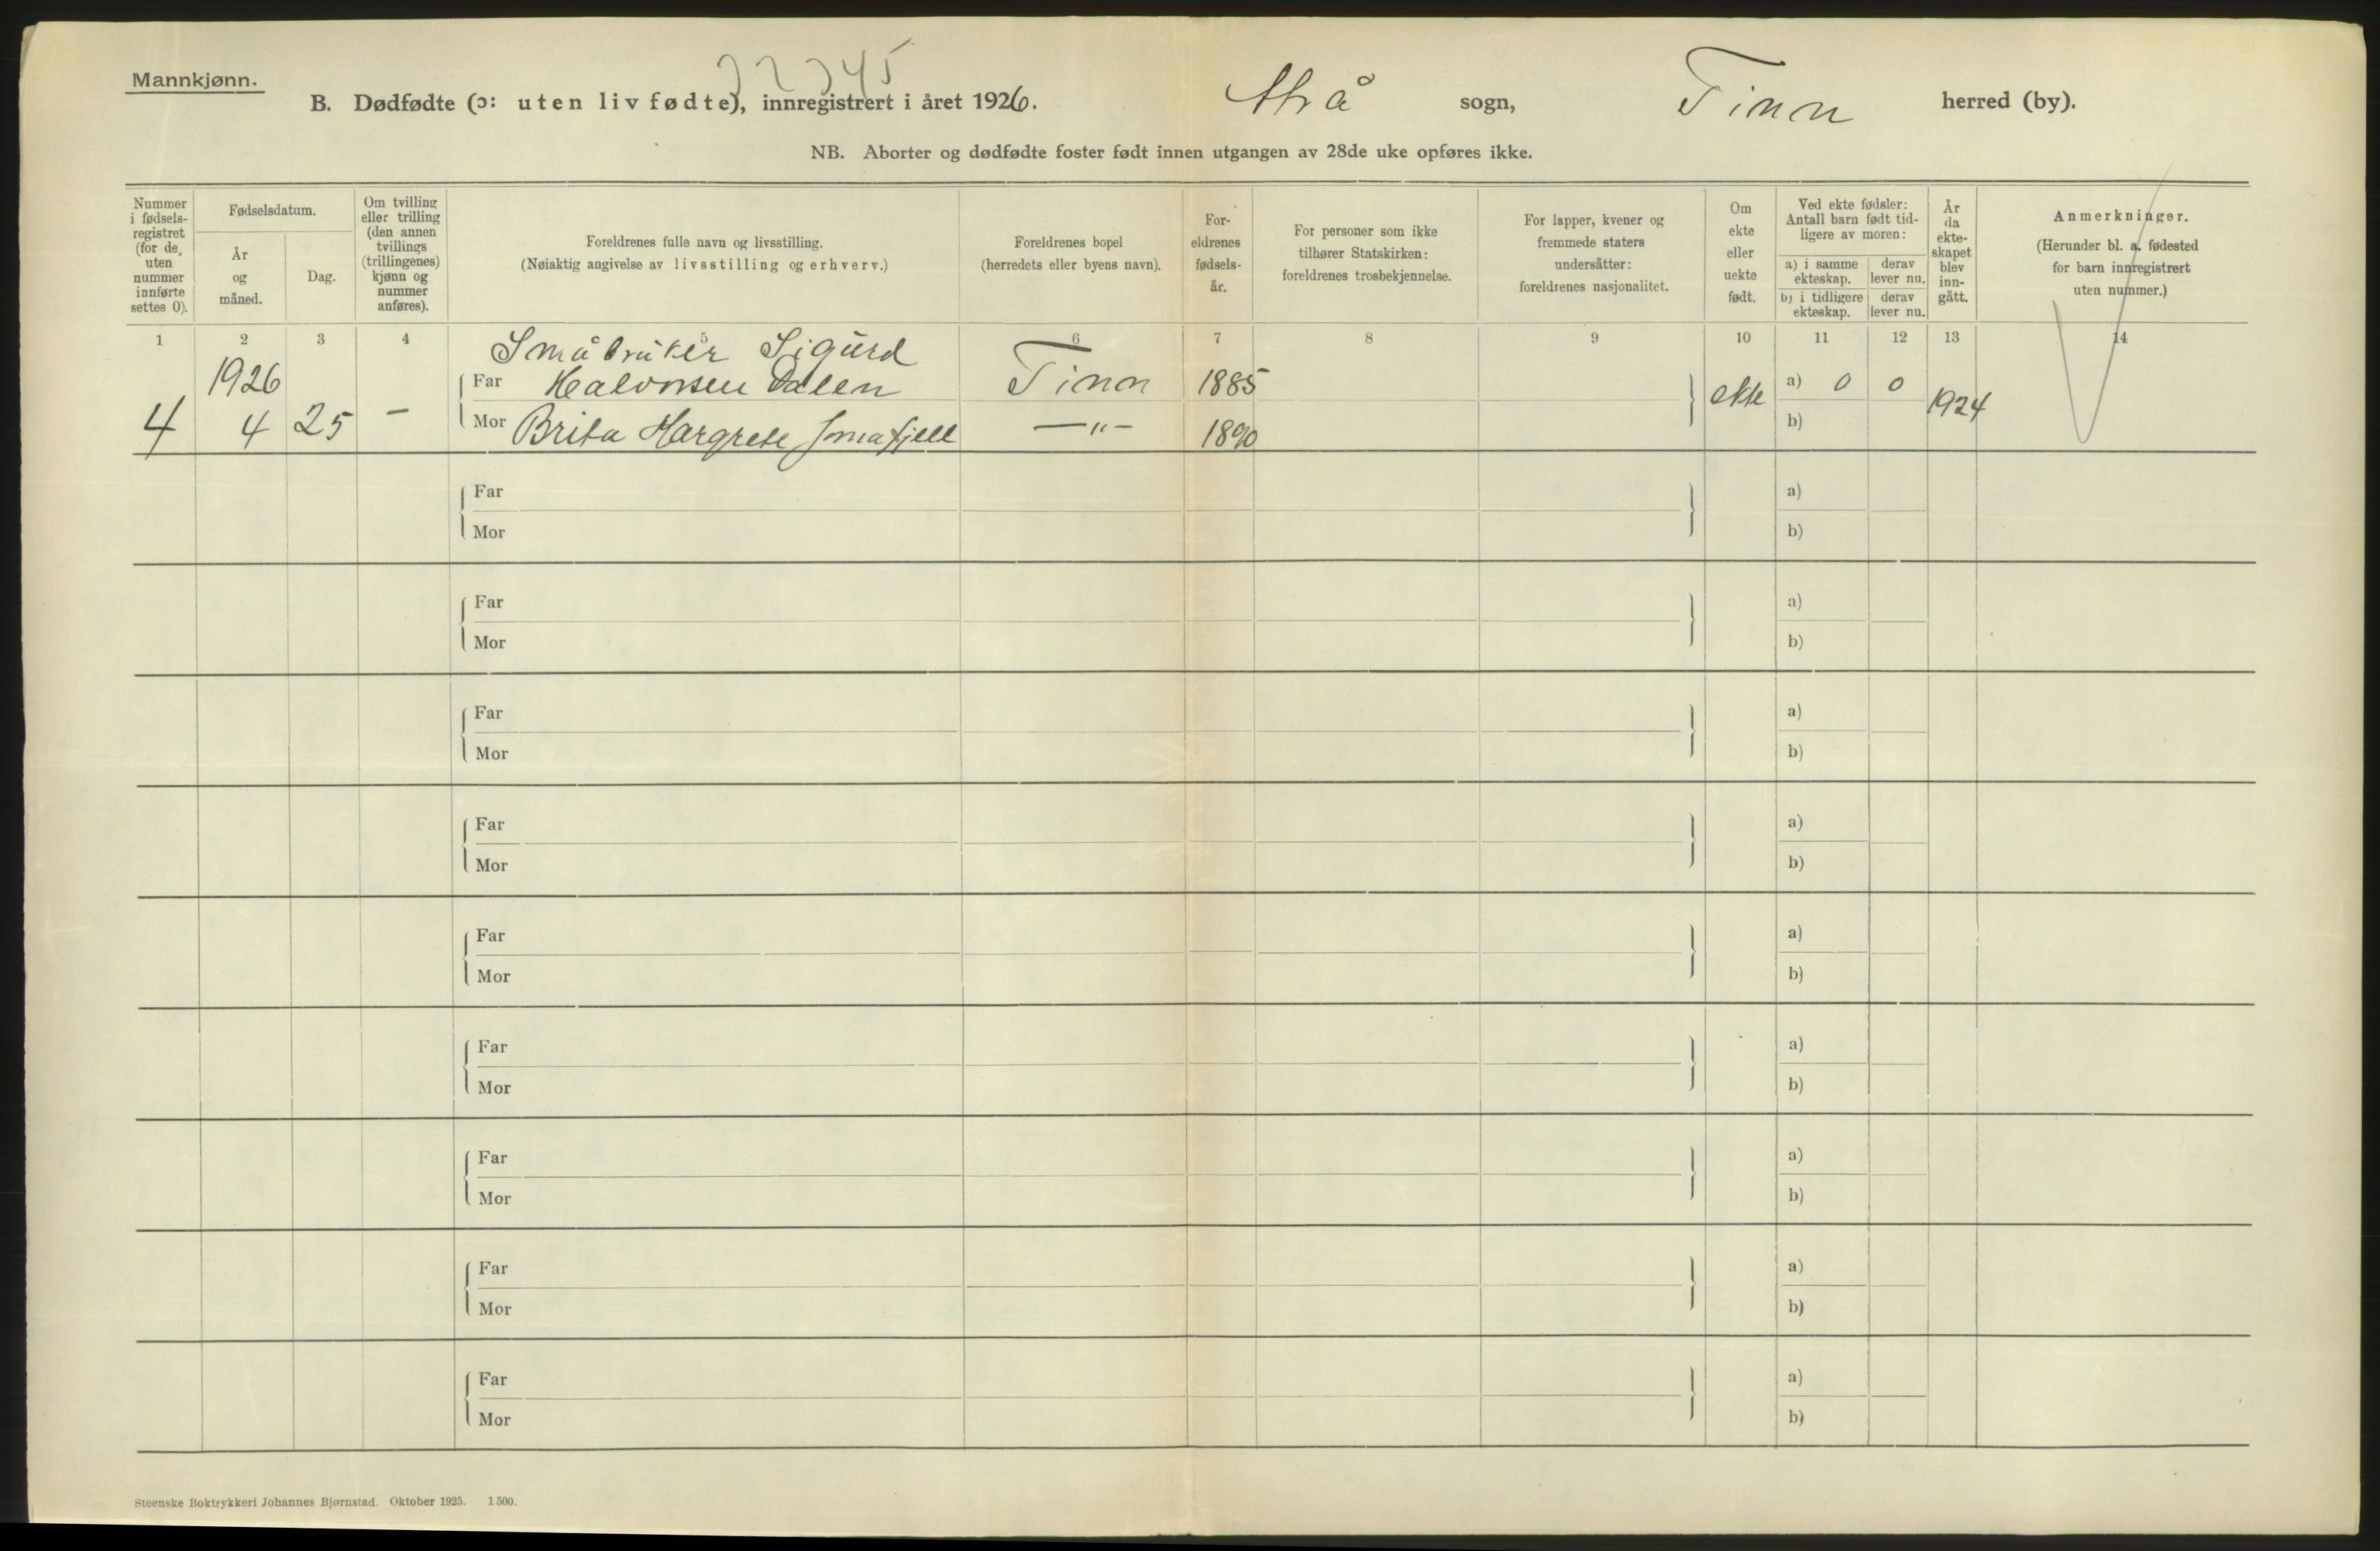 Mannkjønn.
B. Dødfødte (ɔ: uten liv fødte), innregistrert i året 1926. Atrå sogn, Tinn herred (by).
NB. Aborter og dødfødte foster født innen utgangen av 28de uke opføres ikke.
Nummer i fødsels-registret (for de uten nummer innførte settes 0).
Fødselsdatum.
År og måned.
Dag.
Om tvilling eller trilling (den annen tvillings (trillingenes) kjønn og nummer anføres).
Foreldrenes fulle navn og livsstilling.
(Nøiaktig angivelse av livsstilling og erhverv.)
Foreldrenes bopel
(herredets eller byens navn).
For-eldrenes fødsels-år.
For personer som ikke tilhører Statskirken: foreldrenes trosbekjennelse.
For lapper, kvener og fremmede staters undersåtter: foreldrenes nasjonalitet.
Om ekte eller uekte født.
Ved ekte fødsler: Antall barn født tid-ligere av moren:
a) i samme ekteskap. derav lever nu.
b) i tidligere ekteskap. derav lever nu.
År da ekte-skapet blev inn-gått.
Anmerkninger.
(Herunder bl. a. fødested for barn innregistrert uten nummer.)
1 2 3 4 5 6 7 8 9 10 11 12 13 14
Småbruker Sigurd
1926 Far Halvorsen Dalen Tinn 1885 ekte a) 0 0 1924
4 4 25 – Mor Brita Margrete —"— 1890 b)
Far a)
Mor b)
Far a)
Mor b)
Far a)
Mor b)
Far a)
Mor b)
Far a)
Mor b)
Far a)
Mor b)
Far a)
Mor b)
Far a)
Mor b)
Far a)
Mor b)
Steenske Boktrykkeri Johannes Bjørnstad. Oktober 1925. 1500.